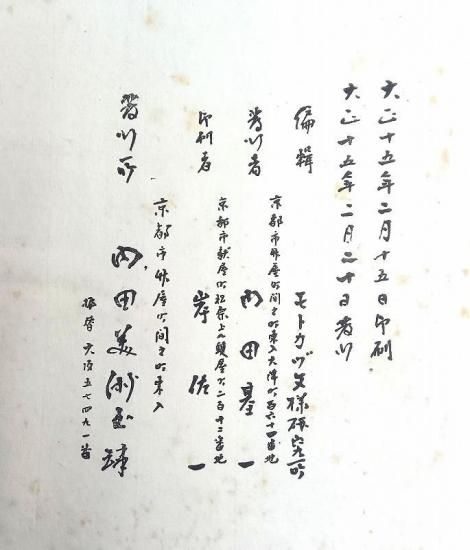 大正十五年二月十五日印刷
大正十五年二月二十日發行
編輯 モトカヅ文様研究所
京都市竹屋町間之町東入大津町百六十一番地
發行者 内田基一
京都市麸屋町松原上ル 屋町二百十二番地
印刷者 岸佐一
京都市竹屋町間之町東入
發行所 内田美術書肆
振替大阪五七四九一番